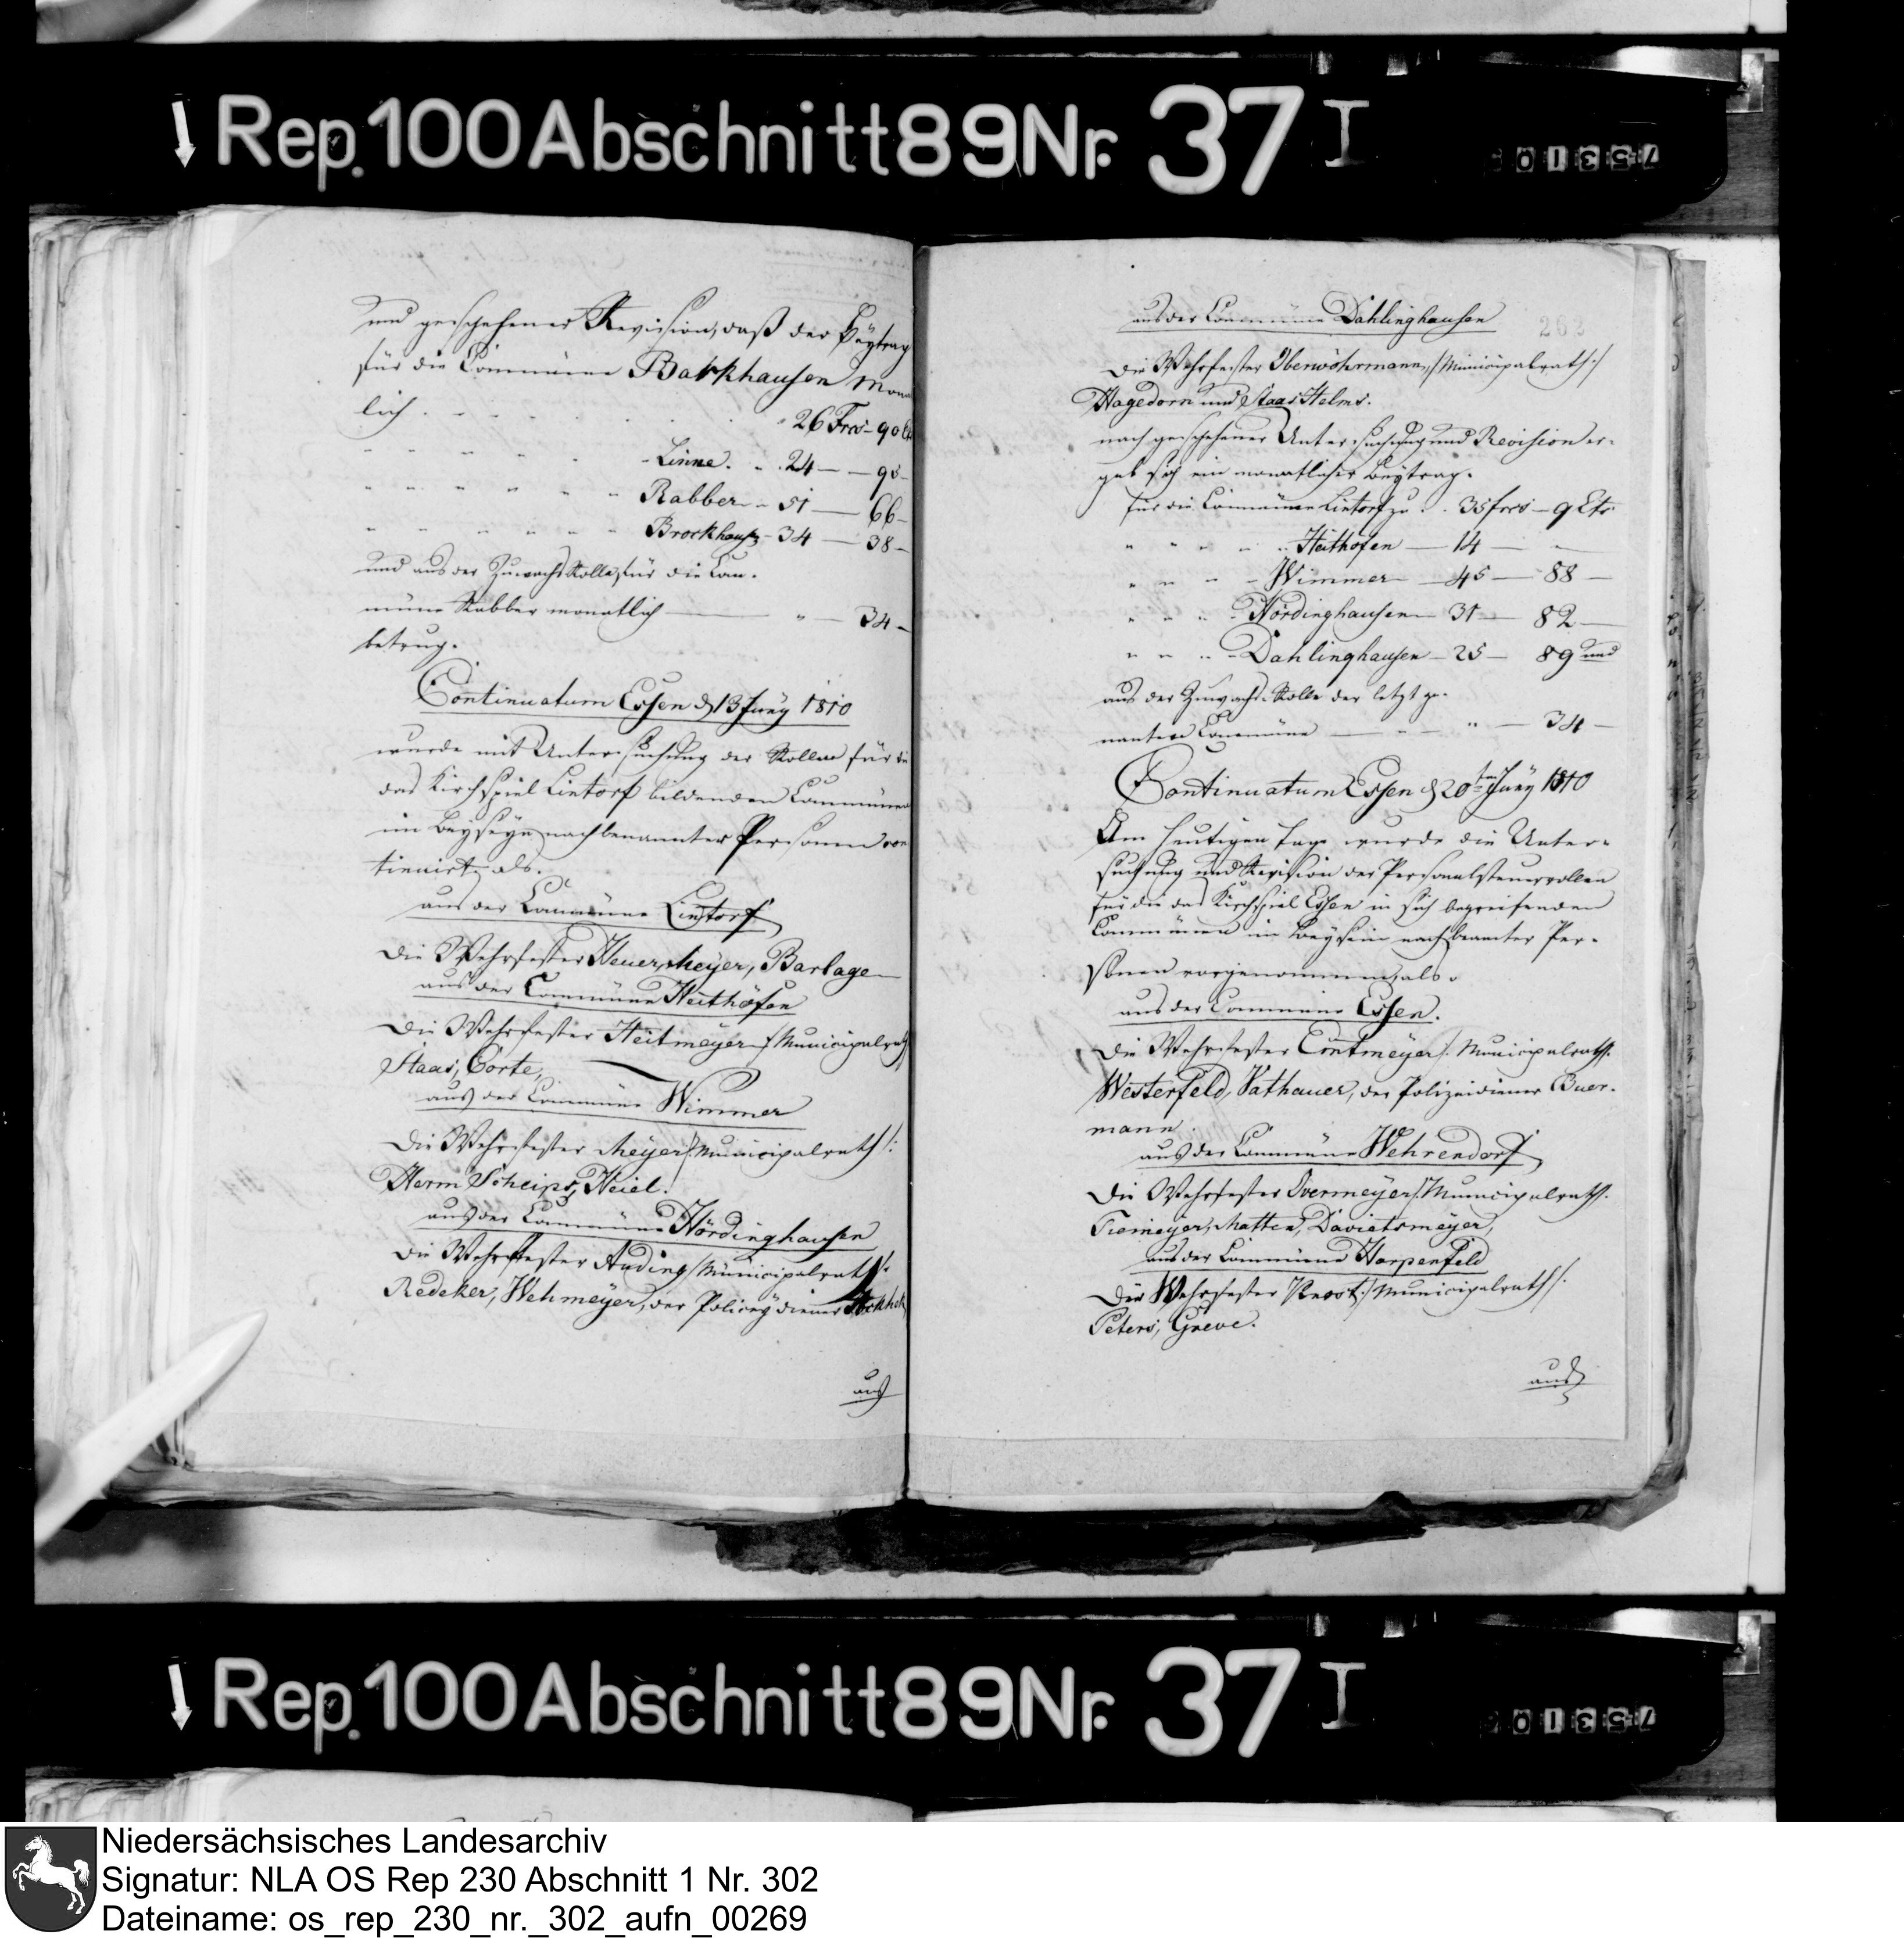 Rep. 100 Abschnitt 89 Nr. 37 I
und geschehener Revision, daß der Beytrag
für die Commüne Barkhausen mona
lich . - - - - - 26 Frcs - 90 Ct
" " " " " - Linne. - . 24 - - 95 -
" " " " " " Rabber - - 51 - 66 -
" " " " " " Brockhausen - 34 - 38 -
und aus der Zuwachs Rolle, für die Com-
müne Rabber monatlich - " - 34 -
betrug.
Continuatum Essen d 13 Juny 1810
wurde mit Untersuchung der Rollen für die
das Kirchspiel Lintorf bildenden Commünen
im Beyseyn nachbenannter Personen con
tinuirt, als.
aus der Commüne Lintorf
Die Wehrfester Heuer, Meyer, Barlage
aus der Commüne Heithöfen
Die Wehrfester Heitmeyer /: Municipalrath
Staas, Corte,
aus der Commüne Wimmer
Die Wehrfester Meyer /: Municipalrath /:
Herm Scheips, Heiel.
aus der Commüne Hördinghausen
Die Wehrfester Auding /: Municipalrath /:
Redeker, Wehmeyer, der Policeydiener
aus
aus der Commüne Dahlinghausen
262
Die Wehrfester Oberwöhrmann, /: Municipalrath :/
Hagedorn und Staas Helms.
nach geschehener Untersuchung und Revision er-
gab sich ein monatlicher Beytrag.
für die Commüne Lintorf zu . . 35 frcs - 9 Cts
" " " " " Heithofen - 14 - -
" " " - Wimmer - 45 - 88 -
" " " - Hördinghausen - 31 - 82 -
" " " - Dahlinghausen - 25 - 89 und
aus der Zuwachs-Rolle der letzt ge-
nanten Commüne - - - " - 34 -
Continuatum Essen d 20ten Juny 1810
Am heutigen Tage wurde die Unter-
suchung und Revision der Personalsteuerrollen
für die das Kirchspiel Essen in sich begreifenden
Commünen im Beyseyn nachbenanter Per-
sonen vorgenommen, als.
aus der Commüne Essen.
Die Wehrfester Contmeyer /: Municipalrath.
Westerfeld, Vathauer, der Polizeidiener Buer-
mann.
aus der Commüne Wehrendorf
Die Wehrfester Overmeyer /: Municipalrath.
Tiemeyer, Matten, Davietsmeyer,
aus der Commüne Harpenfeld
Die Wehrfester Knost /: Municipalrath /:
Peters, Greve.
aus
Rep. 100 Abschnitt 89 Nr. 37 I
Niedersächsisches Landesarchiv
Signatur: NLA OS Rep 230 Abschnitt 1 Nr. 302
Dateiname: os_rep_230_nr._302_aufn_00269